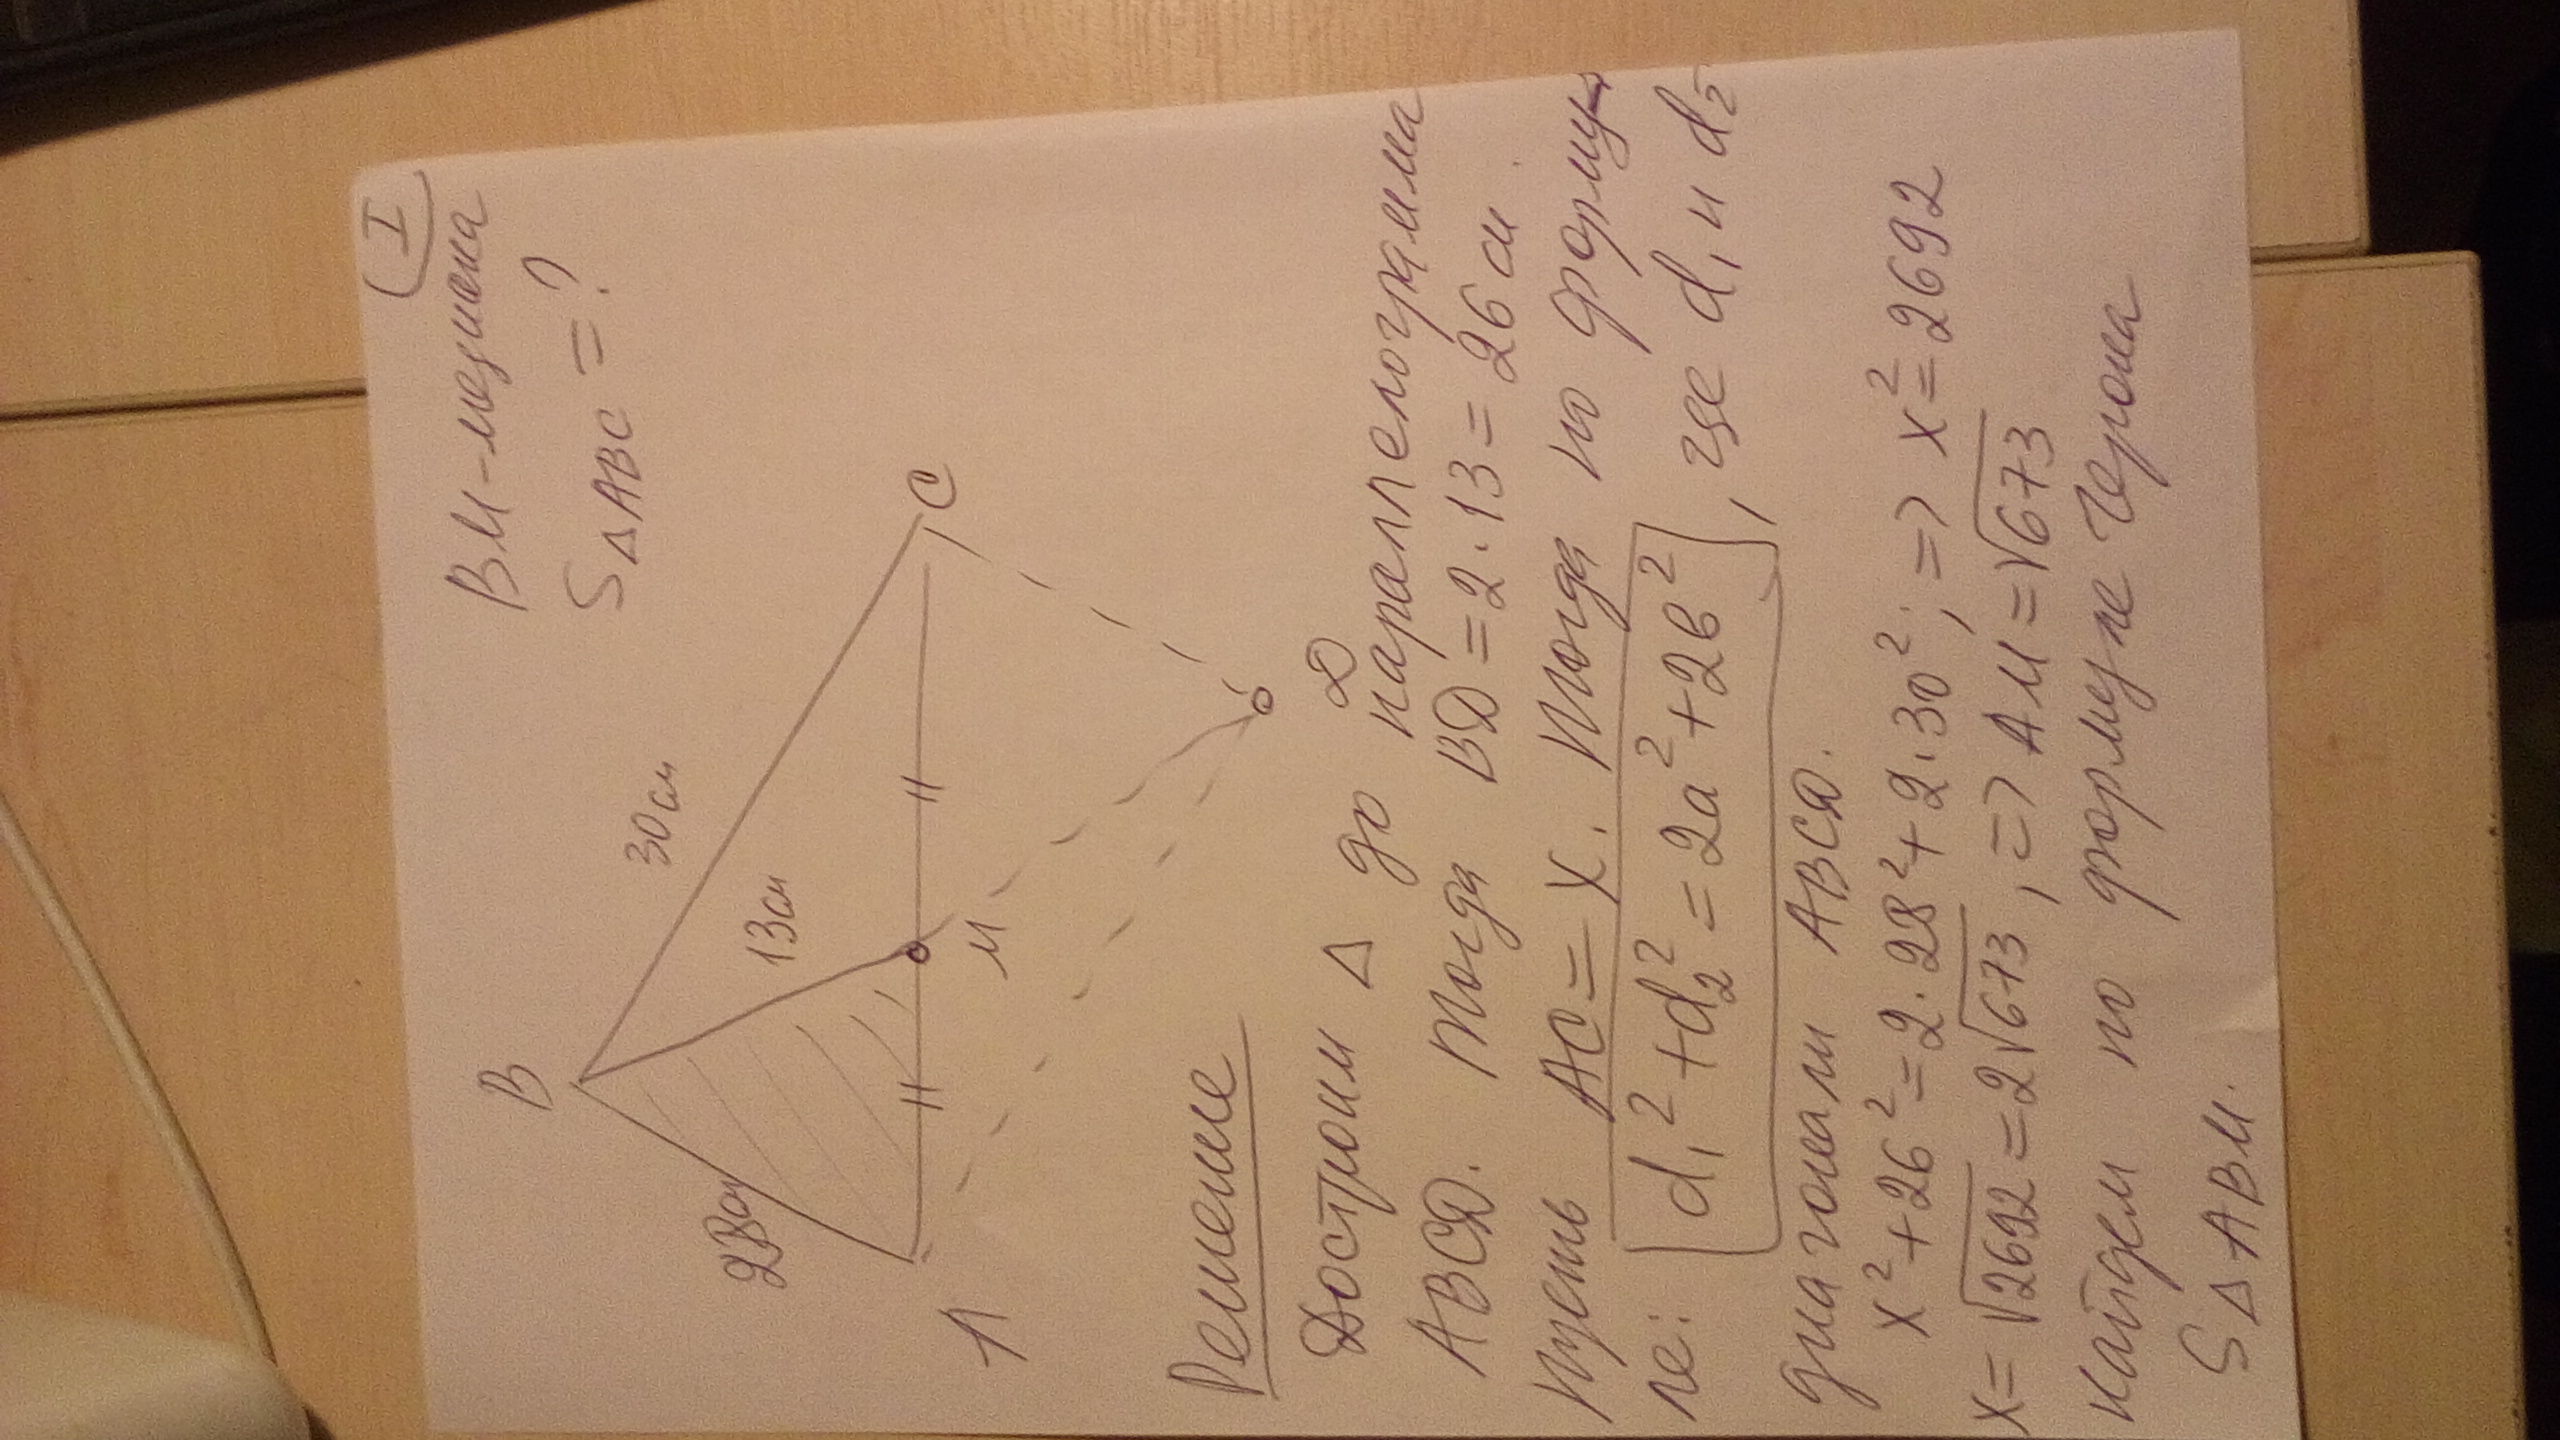 I
BM-медиана
S △ ABC = ?
B
30см
28см
13см
A
M
C
D
Решение
Достроим △ до параллелограмма
ABCD. Тогда BD = 2·13 = 26 см.
Пусть AC = x. Тогда по форму-
ле: d₁² + d₂² = 2a² + 2b², где d₁ и d₂ -
диагонали ABCD.
x² + 26² = 2·28² + 2·30²; => x² = 2692
x = √2692 = 2√673, => AM = √673
Найдем по формуле Герона
S △ ABM.